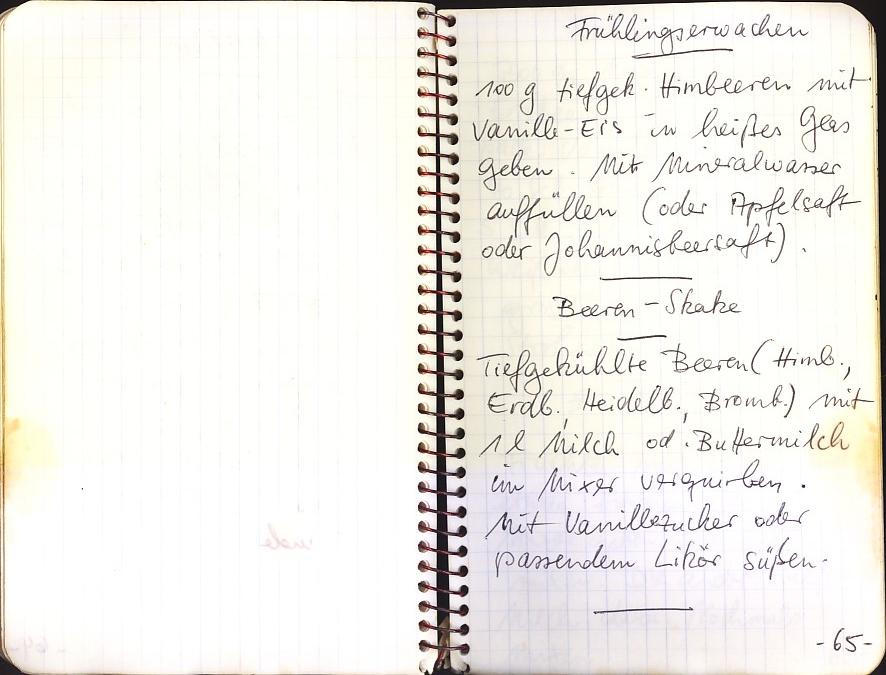 Frühlingserwachen
100 g tiefgek. Himbeeren mit
Vanille-Eis in heißes Glas
geben. Mit Mineralwasser
auffüllen (oder Apfelsaft
oder Johannisbeersaft).
Beeren-Shake
Tiefgekühlte Beeren (Himb.,
Erdb., Heidelb., Bromb.) mit
1 l Milch od. Buttermilch
im Mixer verquirlen.
Mit Vanillezucker oder
passendem Likör süßen.
-65-